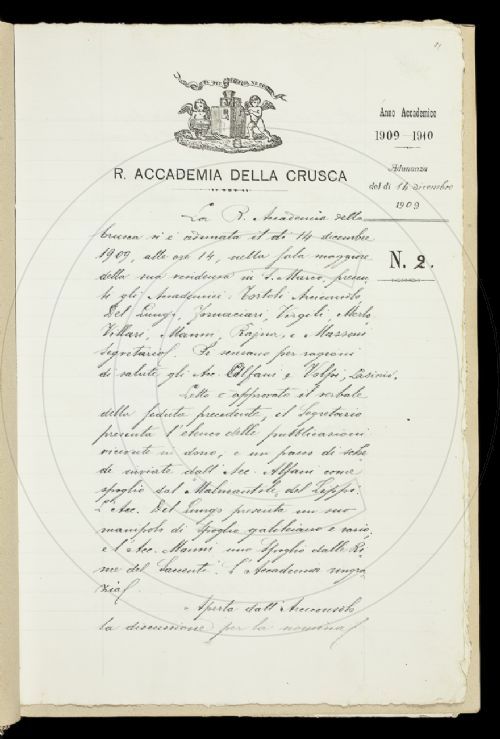 Anno Accademico
1909-1910
Adunanza
del dì 14 dicembre
1909
N. 2.
R. ACCADEMIA DELLA CRUSCA
La R. Accademia della
Crusca si è adunata il dì 14 dicembre
1909, alle ore 14, nella sala maggiore
della sua residenza in S. Marco, presen-
ti gli Accademici: Tortoli Arciconsolo,
Del Lungo, Fornaciari, Virgili,
Villari, Mazzoni, Rajna, e
Segretario. Si scusano per ragioni
di salute gli Acc. Alfani e Volpi,
Letto e approvato il verbale
della seduta precedente, il Segretario
presenta l'elenco delle pubblicazioni
ricevute in dono, e un pacco di sche-
de inviate dall'Acc. Alfani come
spoglio dal Malmantile, del Lippi.
L'Acc. Del Lungo presenta un suo
manipolo di spoglio galileiano e vario,
e l'Acc. uno spoglio dalle Ri-
me del Saccenti. L'Accademia ringra-
zia.
Aperta dall'Arciconsolo
la discussione per la nomina